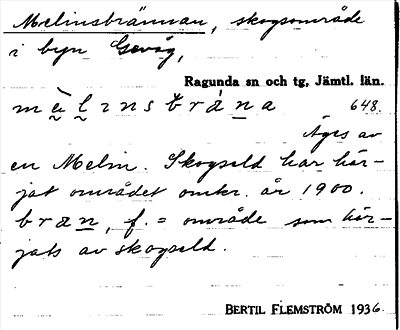 Melinsbrännan, skogsområde
i byn Gevåg,
Ragunda sn och tg, Jämtl. län.
mèlınsbrána 648.
Äges av
en Melin. Skogseld har här-
jat området omkr. år 1900.
bran, f. = område som här-
jats av skogseld.
BERTIL FLEMSTRÖM 1936.